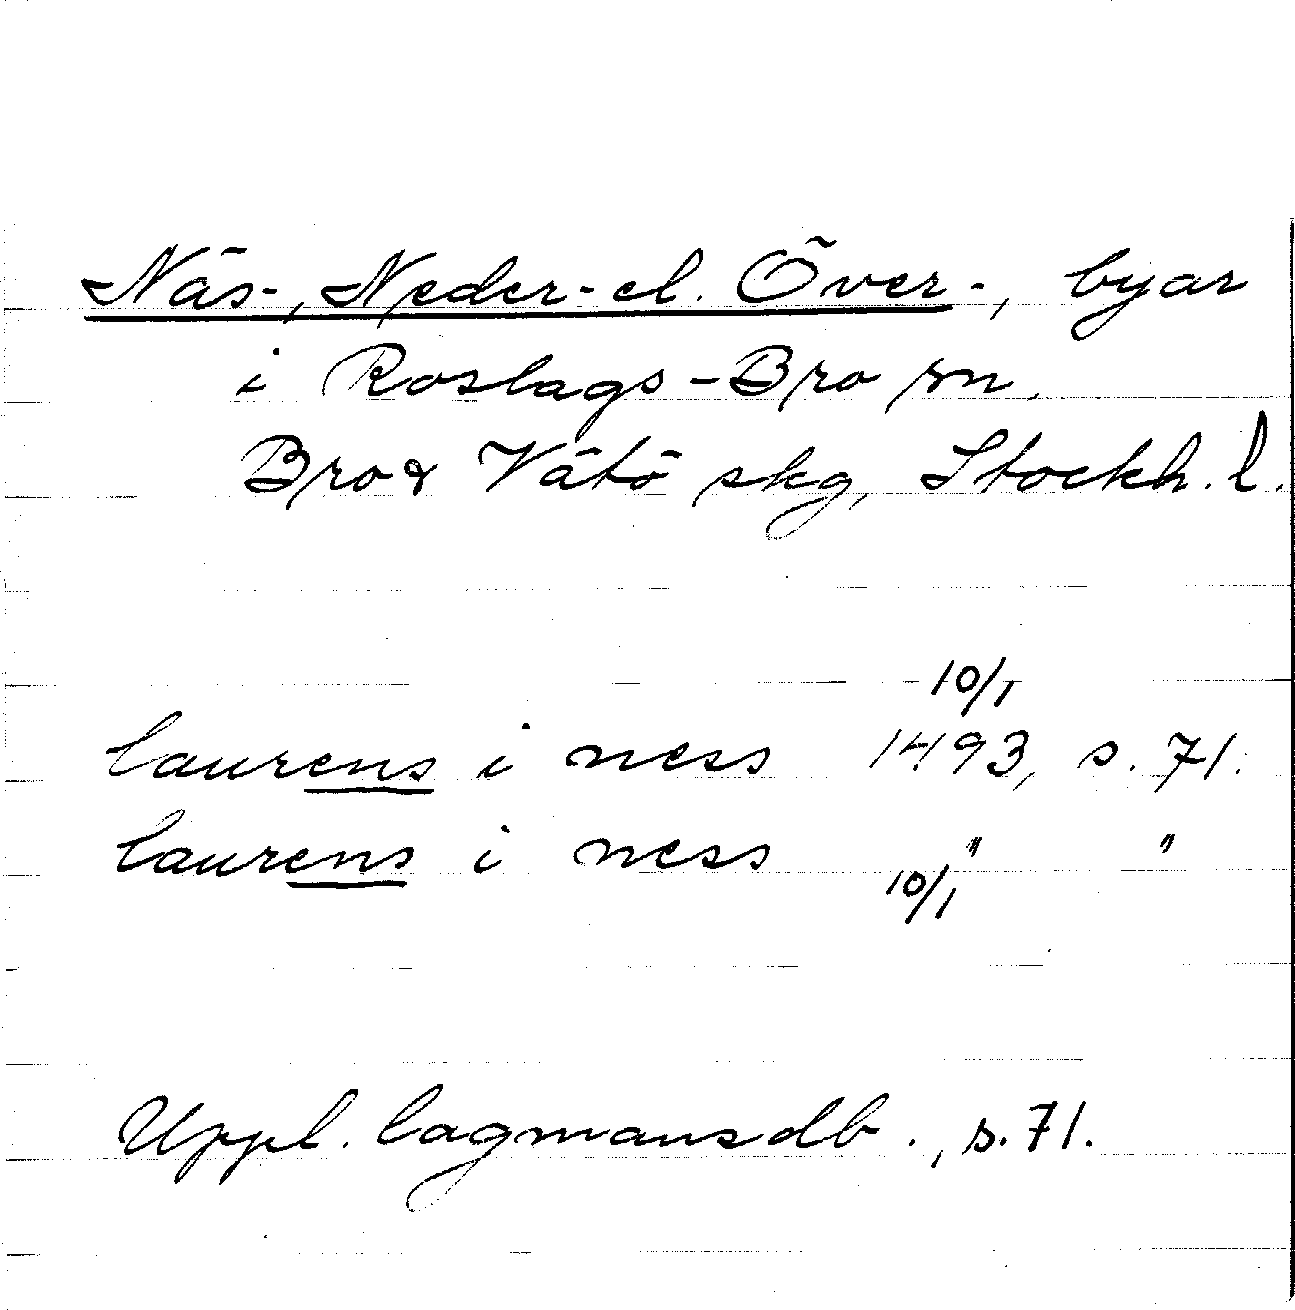 Näs-, Neder- el. Över-, byar
i Roslags-Bro sn,
Bro & Vätö skg, Stockh. l.
10/1
laurens i ness 1493, s. 71.
laurens i ness " "
10/1
Uppl. lagmansdb., s. 71.